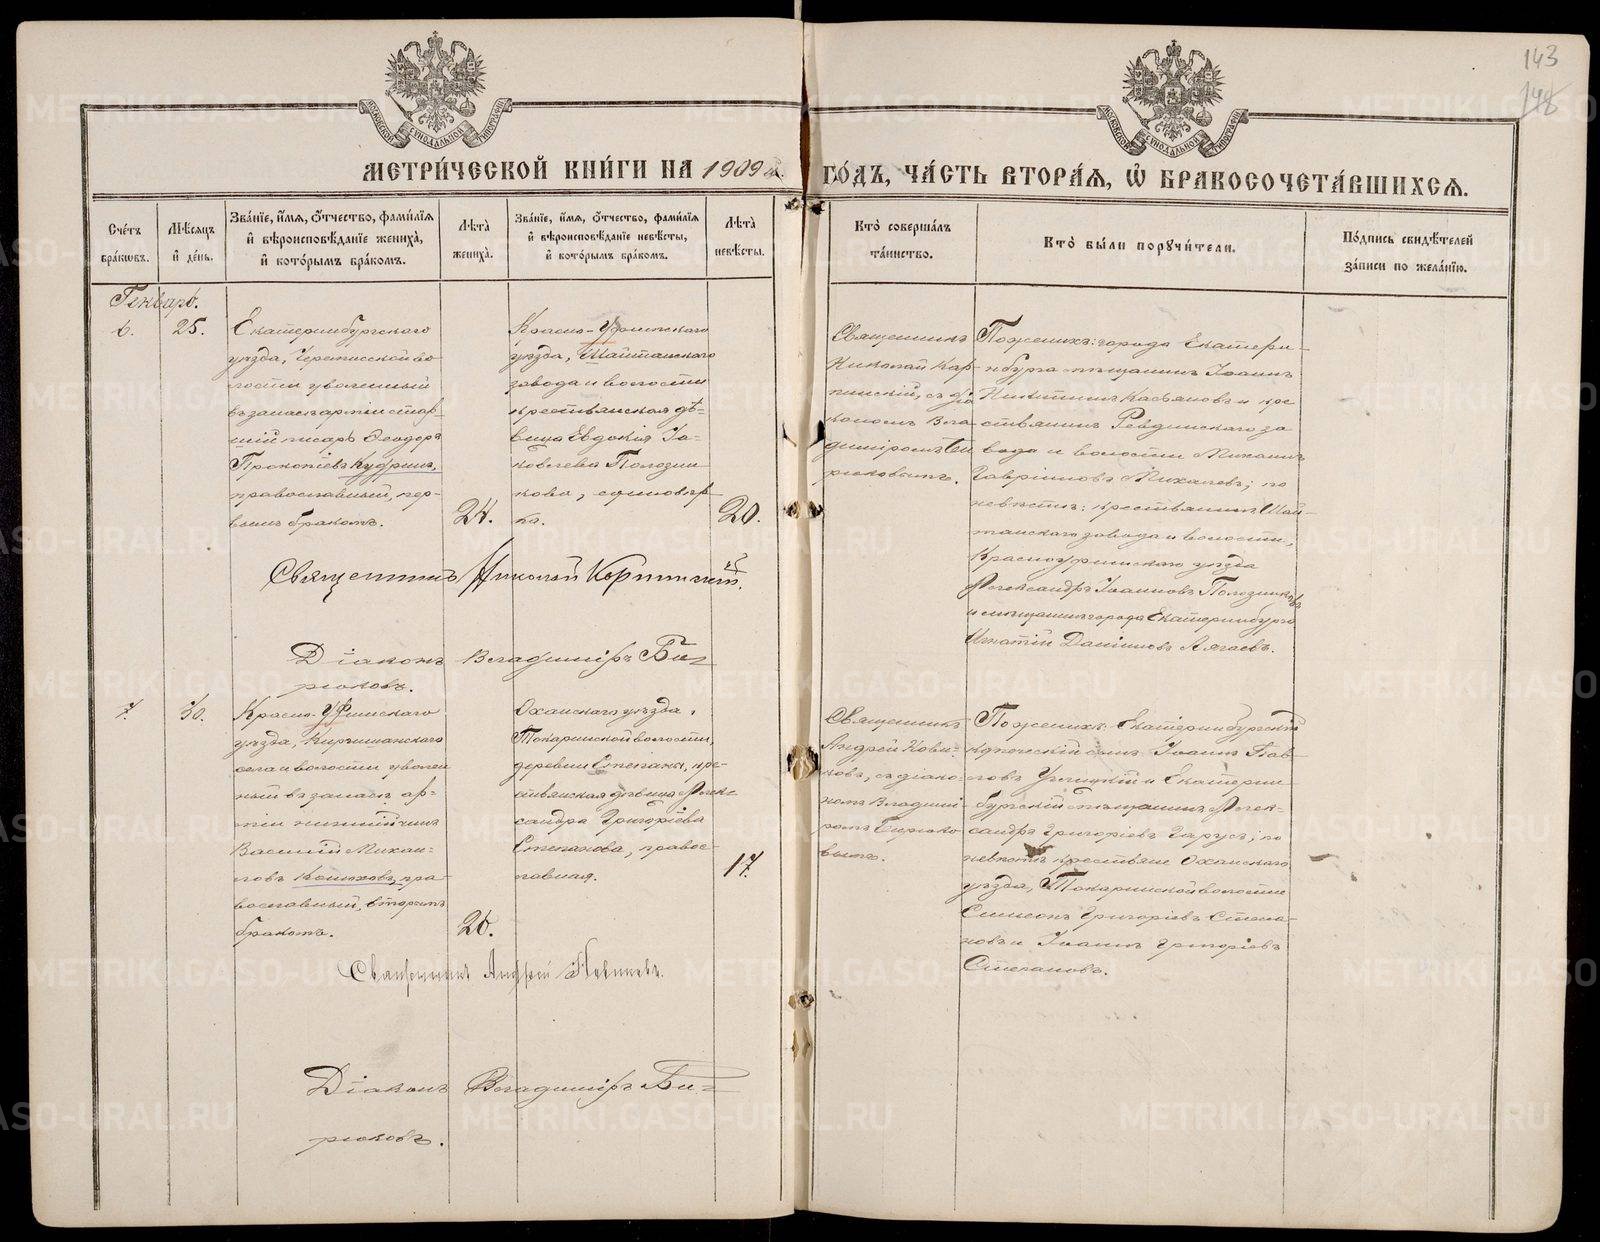 143
148
МОСКОВСКОЙ СѴНОДАЛЬНОЙ ТИПОГРАФІИ
МОСКОВСКОЙ СѴНОДАЛЬНОЙ ТИПОГРАФІИ
МЕТРИ́ЧЕСКОЙ КНИ́ГИ НА 1909 й. ГО́ДЪ, ЧА́СТЬ ВТОРА́Я, Ѡ҆ БРАКОСОЧЕТА́ВШИХСЯ.
Сче́тъ бра́кѡвъ.
Мѣ́сяцъ и҆ де́нь.
Зва́нїе, и҆́мя, ѻ҆́тчество, фами́лїя и҆ вѣроисповѣ́данїе жениха̀, и҆ кото́рымъ бра́комъ.
Лѣ́та жениха̀.
Зва́нїе, и҆́мя, ѻ҆́тчество, фами́лїя и҆ вѣроисповѣ́данїе невѣ́сты, и҆ кото́рымъ бра́комъ.
Лѣ́та невѣ́сты.
Кто̀ соверша́лъ та́инство.
Кто̀ бы́ли порꙋчи́тели.
По́дпись свидѣ́телей за́писи по жела́нїю.
Генварь.
6.
25.
Екатеринбургскаго
уѣзда, Черемисской во-
лости уволенный
въ запасъ арміи стар-
шій писарь Ѳеодоръ
Прокопіевъ Кудринъ,
православный, пер-
вымъ бракомъ.
24.
Красно-Уфимскаго
уѣзда, Шайтанскаго
завода и волости
крестьянская дѣ-
вица Евдокія Іа-
ковлева Полозни-
кова, единовѣр-
ка.
20.
Священникъ
Николай Кор-
пинскій, съ діа
кономъ Вла-
диміромъ Би
рюковымъ.
По женихѣ: города Екатерин-
бурга мѣщанинъ Іоаннъ
Никитинъ Касьяновъ и кре
стьянинъ Ревдинскаго за
вода и волости Михаилъ
Гавріиловъ Михалевъ; по
невѣстѣ: крестьянинъ Шай-
танскаго завода и волости,
Красноуфимскаго уѣзда
Александръ Іоанновъ Полозниковъ
и мѣщанинъ города Екатеринбурга
Игнатій Даніиловъ
Священникъ Николай Корпинскій.
Діаконъ Владиміръ Би-
рюковъ.
7.
30.
Красно-Уфимскаго
уѣзда, Киргишанскаго
села и волости уволен
ный въ запасъ ар-
міи нижній чинъ
Василій Михаи-
ловъ Конюховъ, пра-
вославный, вторымъ
бракомъ.
26.
Оханскаго уѣзда,
Токаринской волости,
деревни Степаны, кре-
стьянская дѣвица Алек-
сандра Григоріева
Степанова, правос-
лавная.
17.
Священникъ
Андрей Нови-
ковъ, съ діако-
номъ Владимі-
ромъ Бирюко-
вымъ.
По женихѣ: Екатеринбургскій
купеческій сынъ Іоаннъ Пав-
ловъ Углицкій и Екатерин-
бургскій мѣщанинъ Алек-
сандръ Григоріевъ Гарусъ; по
невѣстѣ крестьяне Оханскаго
уѣзда, Токаринской волости
Симеонъ Григоріевъ Степа-
новъ и Іоаннъ Григоріевъ
Степановъ.
Священникъ Андрей Новиковъ.
Діаконъ Владиміръ Би-
рюковъ.
METRIKI.GASO-URAL.RU